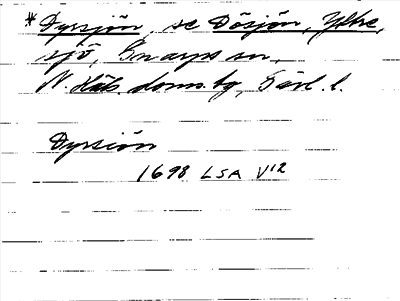 *Dyrsjön, se Dösjön, Yttre,
sjö, Gnarps sn,
N. Häls. doms.bg, Gävl. l.
Dyrsiön
1698 LSA V12